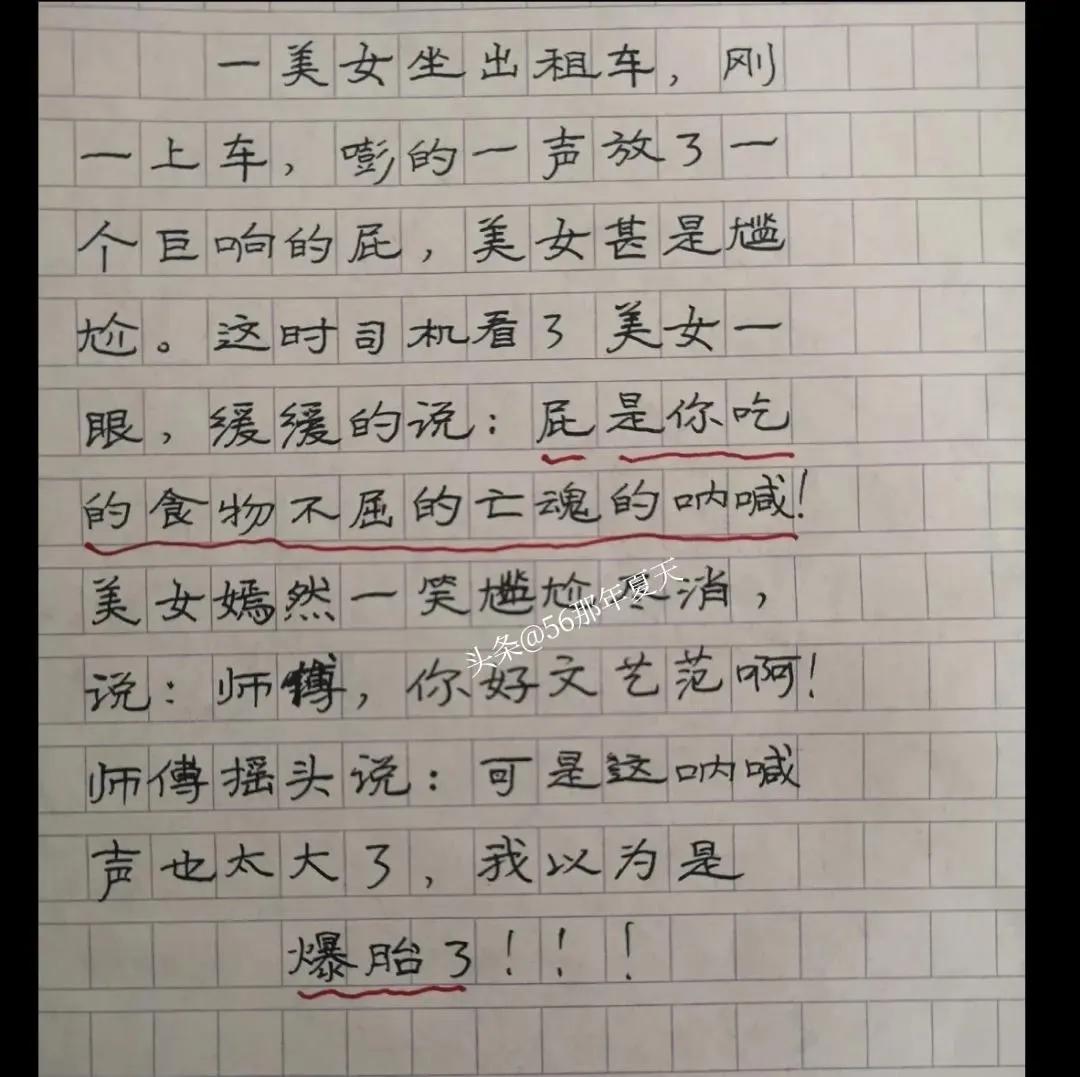 一美女坐出租车，刚
一上车，嘭的一声放了一
个巨响的屁，美女甚是尴
尬。这时司机看了美女一
眼，缓缓的说：屁是你吃
的食物不屈的亡魂的呐喊！
美女嫣然一笑尴尬尽消，
头条@56那年夏天
说：师傅，你好文艺范啊！
师傅摇头说：可是这呐喊
声也太大了，我以为是
爆胎了！！！